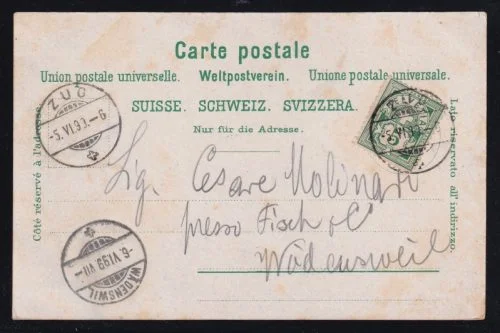 Carte postale
Union postale universelle. Weltpostverein. Unione postale universale.
SUISSE. SCHWEIZ. SVIZZERA.
Nur für die Adresse.
Côté réservé à l'adresse.
Lato riservato all' indirizzo.
ZUG
-5.VI.99.-6
ZUG
5.VI.99
5
Sig. Cesare Molinari
presso Fisch & C
Wädensweil
-6.VI.99.VII-
WÄDENSWIL